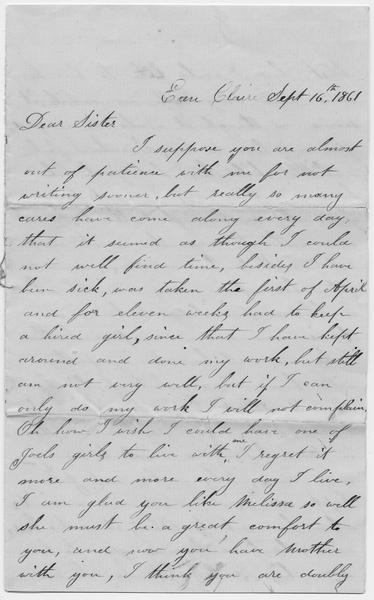 Eau Claire Sept 16th, 1861
Dear Sister
I suppose you are almost
out of patience with me for not
writing sooner, but really so many
cares have come along every day,
that it seemed as though I could
not well find time, besides I have
ben sick, was taken the first of April
and for eleven weeks had to keep
a hired girl, since that I have kept
around and done my work, but still
am not very well, but if I can
only do my work I will not complain,
Oh how I wish I could have one of
Joels girls to live with me, I regret it
more and more every day I live,
I am glad you like Melissa so well
she must be a great comfort to
you, and now you have Mother
with you, I think you are doubly